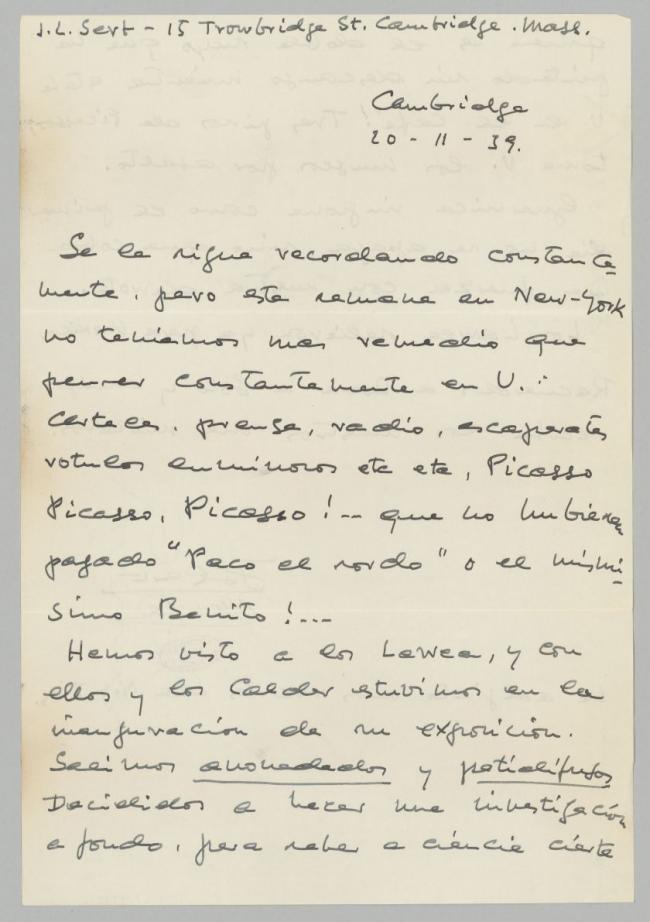 J.L. Sert - 15 Trowbridge St. Cambridge. Mass.
Cambridge
20 - 11 - 39.
Se le sigue recordando constante
mente. pero esta semana en New-York
no teniamos mas remedio que
pensar constantemente en V. :
Carteles. prensa, radio, escaparates
rotulos luminosos etc etc, Picasso
Picasso, Picasso !-- que no hubieran
pagado "Paco el sordo" o el mismi-
simo Benito !...
Hemos visto a los, y con
ellos y los Calder estuvimos en la
inauguración de su exposición.
Salimos anonadados y patidifusos
Decididos a hacer una investigación
a fondo. para saber a ciencia cierta